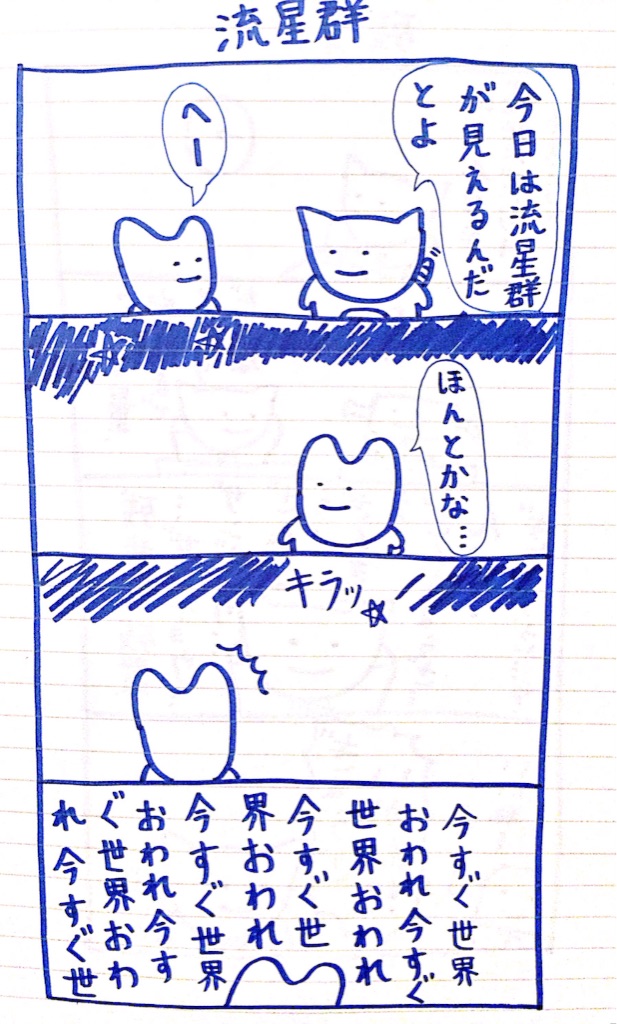 流星群
今日は流星群
が見えるんだ
とよ
へー
ほんとかな…
キラッ
今すぐ世界
おわれ今すぐ
世界おわれ
今すぐ世
界おわれ
今すぐ世界
おわれ今す
ぐ世界おわ
れ今すぐ世